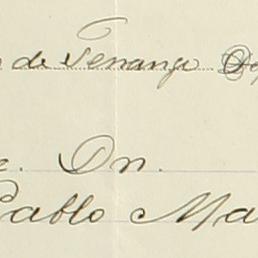 de Tenango
Dn.
Pablo Ma